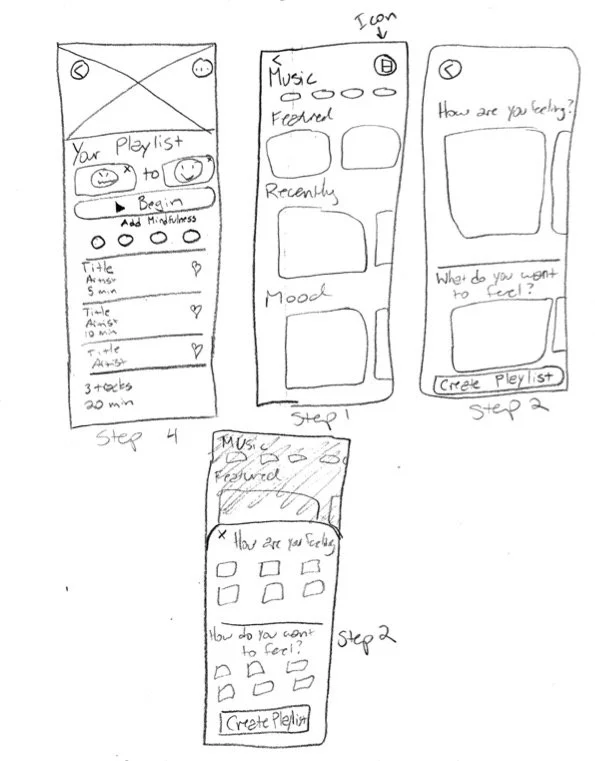 Icon
Your Playlist
x
x
to
Begin
Add Mindfulness
Title
Artist
5 min
Title
Artist
10 min
Title
Artist
3 tracks
20 min
Step 4
Music
Featured
Recently
Mood
Step 1
How are you feeling?
What do you want
to feel?
Create Playlist
Step 2
Music
Featured
x How are you feeling
How do you want
to feel?
Create Playlist
Step 2